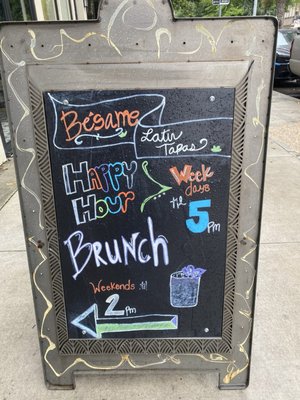 Bésame
Latin
Tapas
HAPPY
HOUR
WeeK
days
til
5pm
BRUNCH
Weekends til
2pm